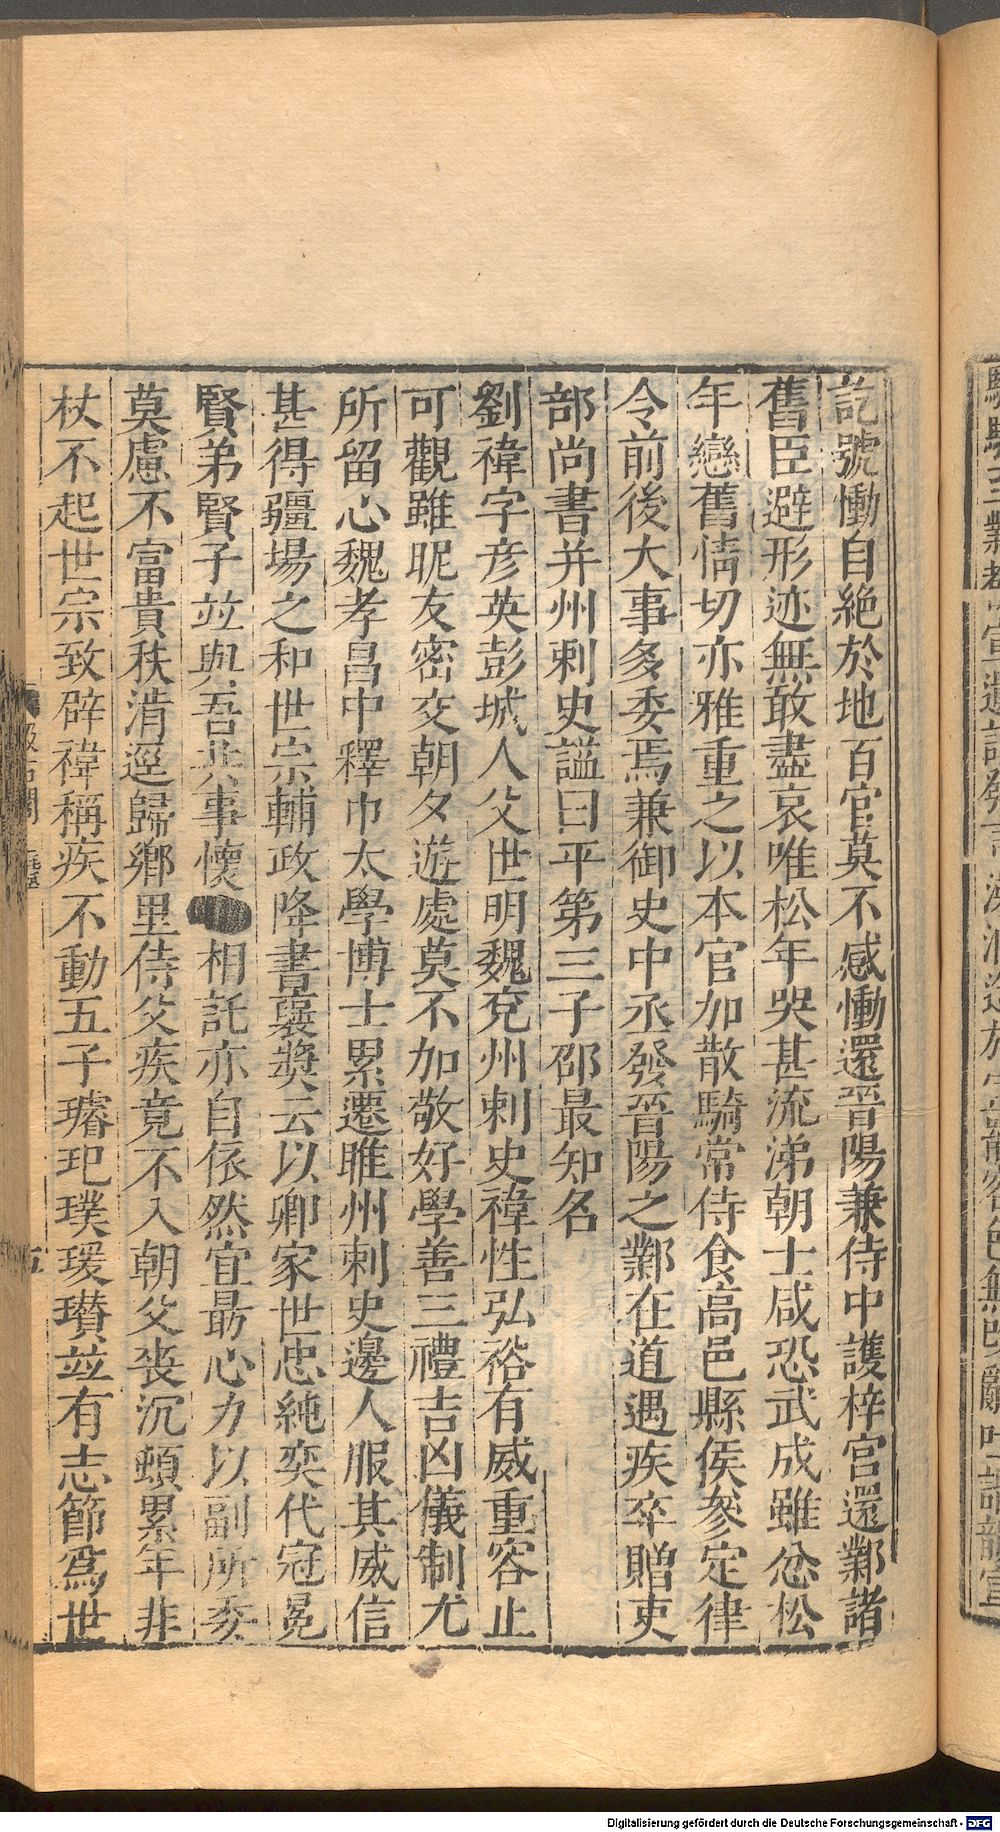 訖號慟自絶於地百官莫不感慟還晉陽兼侍中護梓宫還鄴諸
舊臣避形迹無敢盡哀唯松年哭甚流涕朝士咸恐武成雖忿松
年戀舊情切亦雅重之以本官加散騎常侍食高邑縣侯參定律
令前後大事多委焉兼御史中丞發晉陽之鄴在道遇疾卒贈吏
部尚書并州刺史謚曰平第三子邵最知名
劉禕字彦英彭城人父世明魏兖州刺史禕性弘裕有威重容止
可觀雖昵友密交朝夕遊處莫不加敬好學善三禮吉凶儀制尤
所留心魏孝昌中釋巾太學博士累遷睢州刺史邊人服其威信
甚得疆場之和世宗輔政降書襃奬云以卿家世忠純奕代冠冕
賢弟賢子並與吾共事懷相託亦自依然宜勗心力以副所委
莫慮不富貴秩滿逕歸鄉里侍父疾竟不入朝父喪沉頓累年非
杖不起世宗致辟禕稱疾不動五子璿玘璞瑗瓚並有志節爲世
Digitalisierung gefördert durch die Deutsche Forschungsgemeinschaft - DFG